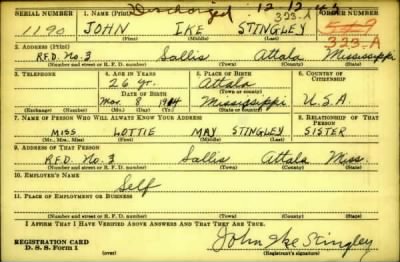 Discharged 12-12-42
SERIAL NUMBER 1. NAME (Print) 323-A ORDER NUMBER
1190 JOHN IKE STINGLEY
(First) (Middle) (Last) 323-A
2. ADDRESS (Print)
R.F.D. No. 3 Sallis Attala Mississippi
(Number and street or R. F. D. number) (Town) (County) (State)
3. TELEPHONE 4. AGE IN YEARS 5. PLACE OF BIRTH 6. COUNTRY OF CITIZENSHIP
26 yr. Attala
DATE OF BIRTH (Town or county)
Mar. 8 1914 Mississippi U.S.A
(Exchange) (Number) (Mo.) (Day) (Yr.) (State or country)
7. NAME OF PERSON WHO WILL ALWAYS KNOW YOUR ADDRESS 8. RELATIONSHIP OF THAT PERSON
MISS LOTTIE MAY STINGLEY SISTER
(Mr., Mrs., Miss) (First) (Middle) (Last)
9. ADDRESS OF THAT PERSON
R.F.D. No. 3 Sallis Attala Miss.
(Number and street or R. F. D. number) (Town) (County) (State)
10. EMPLOYER'S NAME
Self
11. PLACE OF EMPLOYMENT OR BUSINESS
(Number and street or R. F. D. number) (Town) (County) (State)
I AFFIRM THAT I HAVE VERIFIED ABOVE ANSWERS AND THAT THEY ARE TRUE.
REGISTRATION CARD
D. S. S. Form 1 John Ike Stingley
(Registrant's signature)